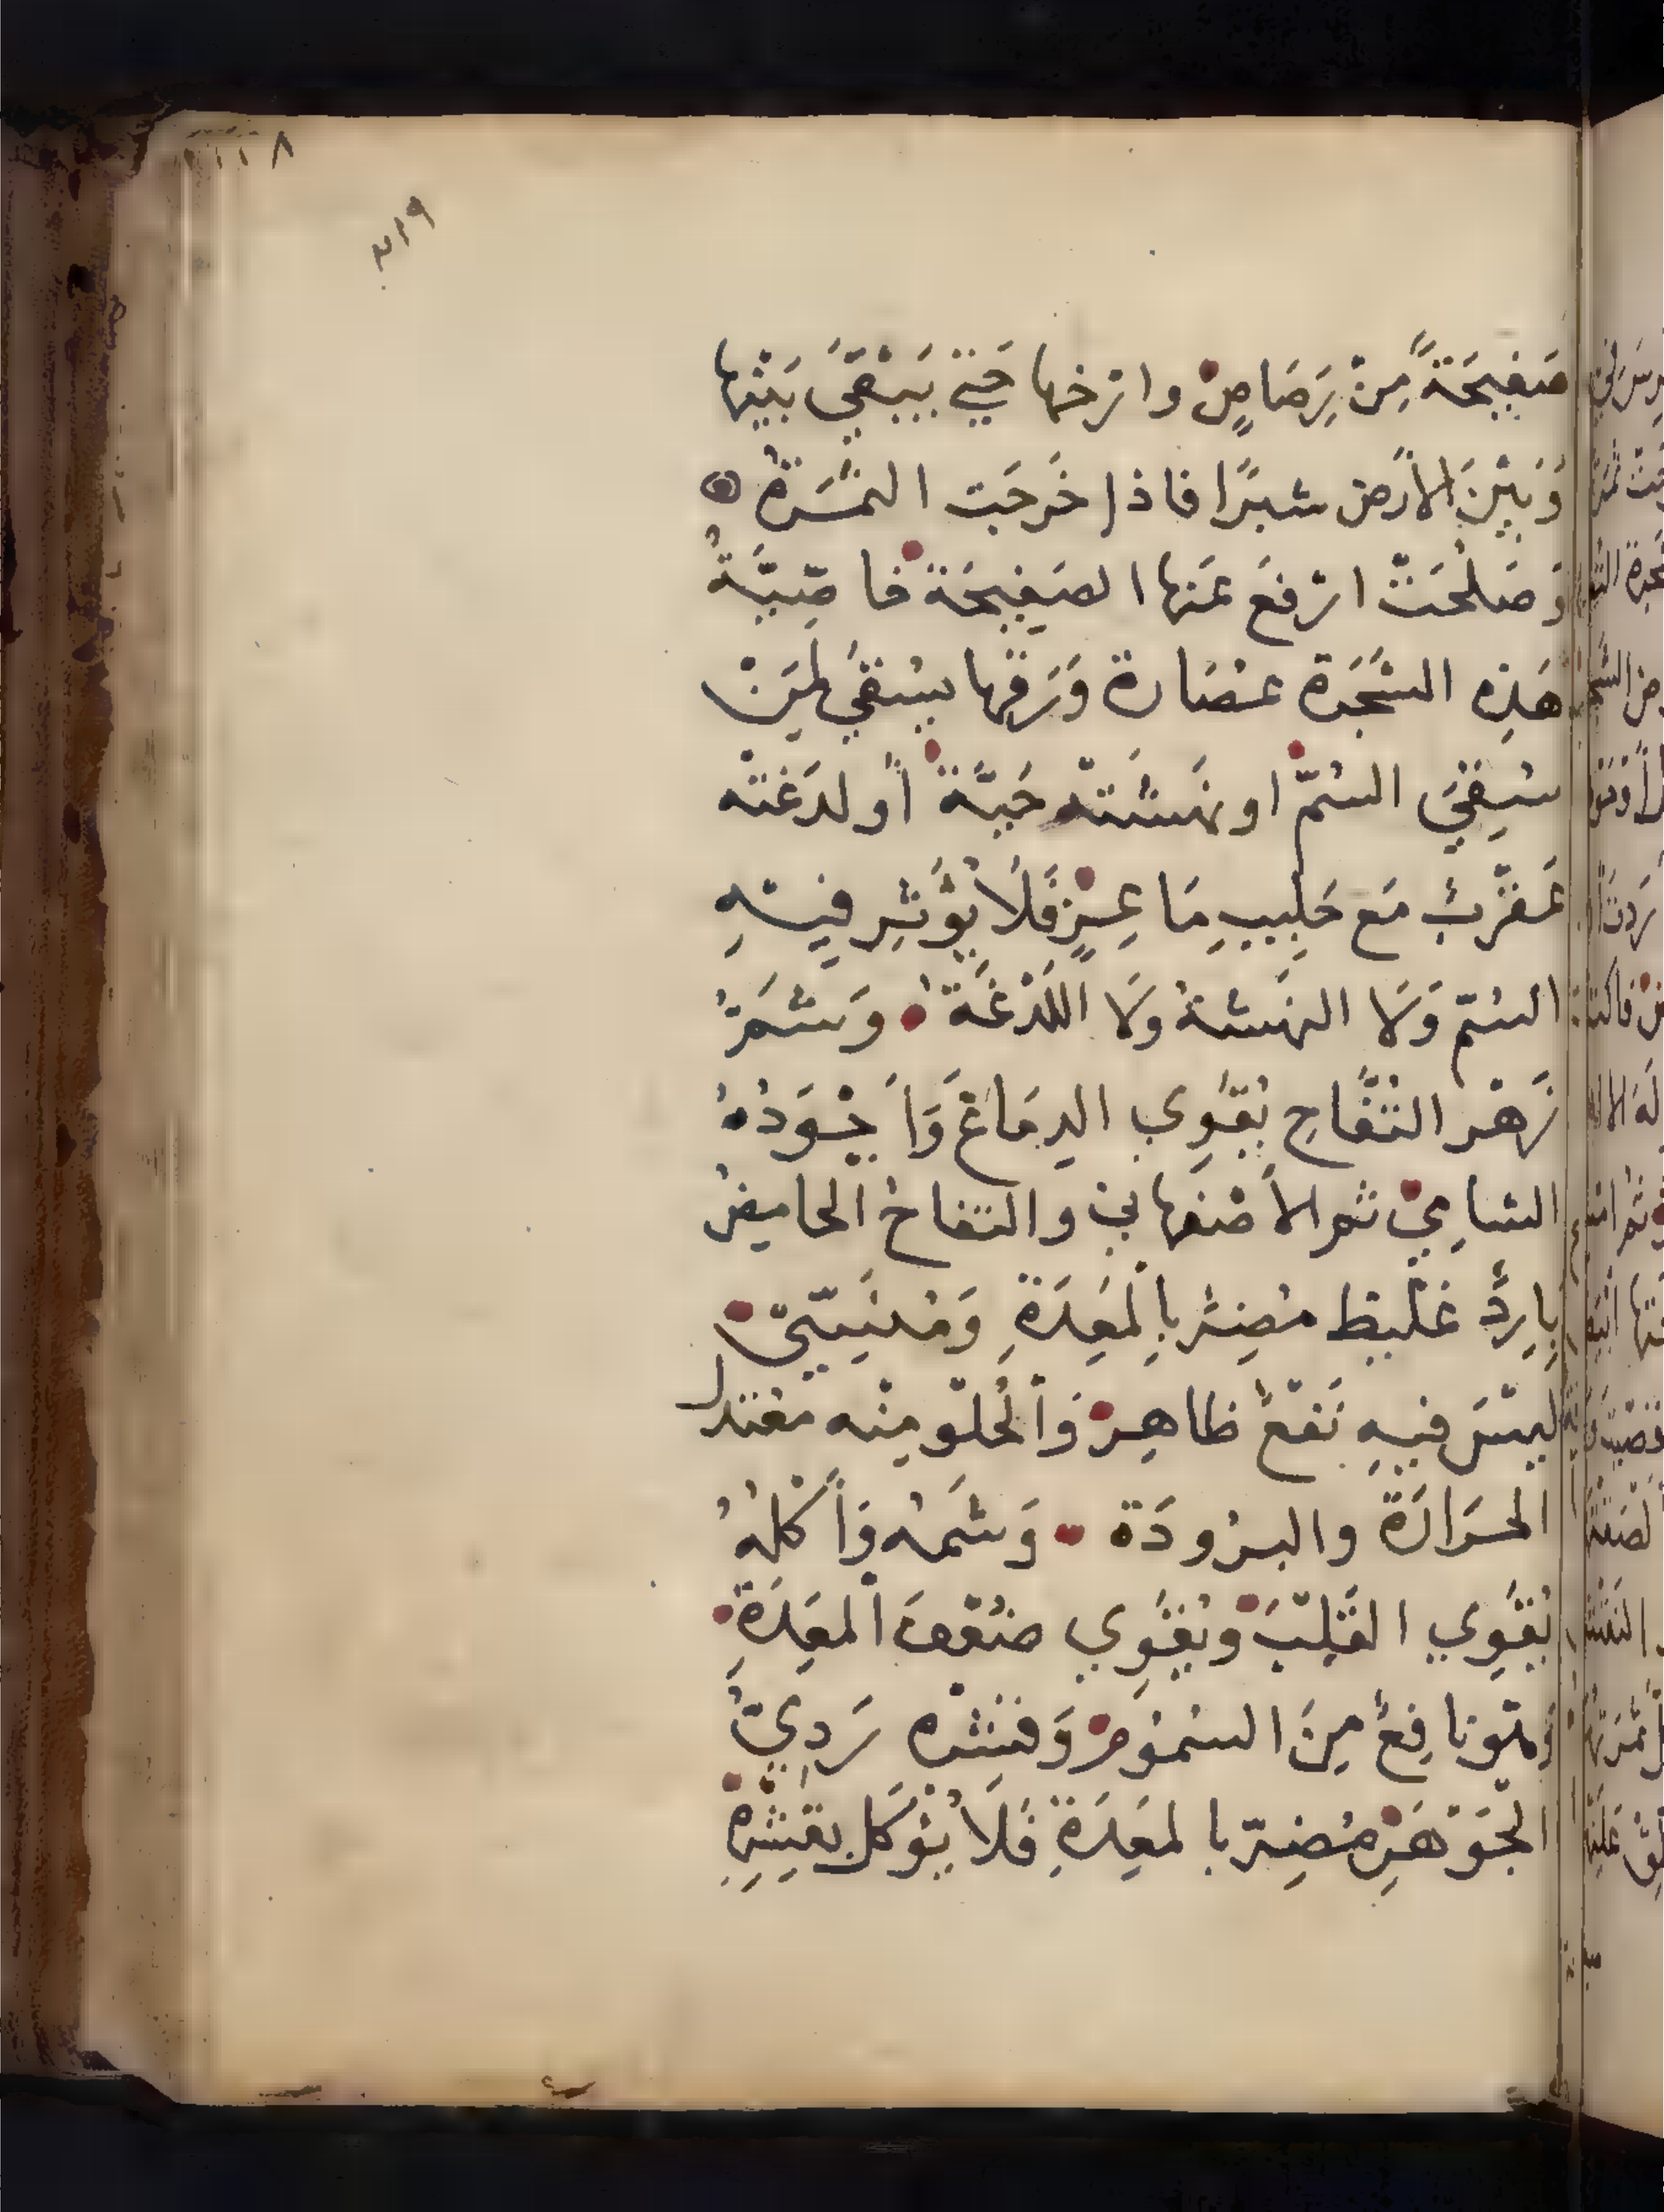 ١١٨
٢١٩
صَفِيحَةً مِنْ رَصَاصٍ وارخها حَتى يَبْقَى بَيْنها
وَبَيْنَ الأرَضِ شبرًا فاذا خَرجَت الثمَرَةُ
وَصَلُحَتْ ارْفَعَ عَنها الصَفِيحَة خاصِّيَّةُ
هَذِه الشَّجَرَة عصَارة وَرَقها يسْقَى لمَنْ
سُقِيَ السُمّ او نهَشَتْه حَيَّة أو لدَغَتْه
عَقْرَبُ مَع حَلِيبِ مَاعِزٍ فَلَا يُؤَثِر فِيهِ
السُمّ وَلَا النهَشةُ وَلَا اللَدْغَةُ وَشَمّ
زَهْر التُفَّاحِ يُقَوِي الدِمَاغَ وَأَجْوَدُهُ
الشامِيّ ثم الأَصْفهاني والتفاحُ الحامِضُ
بِارِدٌ غَليظ مُضِر بِالْمَعِدَةِ وَمُنَسِيّ
ليْسَ فيهِ نَفْعٌ ظاهِرٌ وَالْحُلْو مِنْه مُعْتدل
الحَرَارَة والبرُودَة وَشَمهُ وَأَكْلهُ
يُقَوِي القَلْبَ ويُقَوِي ضُعْفَ الْمَعِدَةِ
وَهوَ نافِعٌ مِنَ السُمُومِ وَقشْره رَدِيُّ
الْجَوْهَرِ مُضِرّ بالمَعِدَةِ فَلَا يُؤكَل بقِشْرِهِ